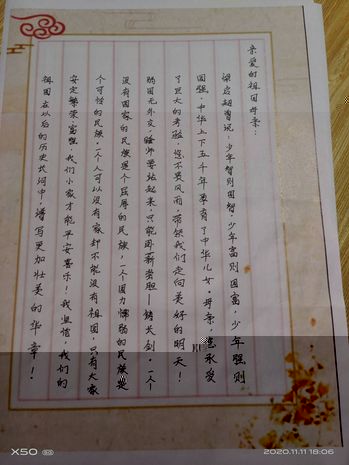 亲爱的祖国母亲：
梁启超曾说，少年智则国智，少年富则国富，少年强则
国强，中华上下五千年孕育了中华儿女，母亲，您承受
了巨大的考验，您不畏风雨，带领我们走向美好的明天！
弱国无外交，雄狮要站起来，只能卧薪尝胆一铸长剑。一个
没有国家的民族是个屈辱的民族，一个国力懦弱的民族是
个可怜的民族，一个人可以没有家却不能没有祖国，只有大家
安定繁荣，富强，我们小家才能平安喜乐！我坚信，我们的
祖国在以后的历史长河中，谱写更加壮美的华章！
X50 5G
2020.11.11 18:06